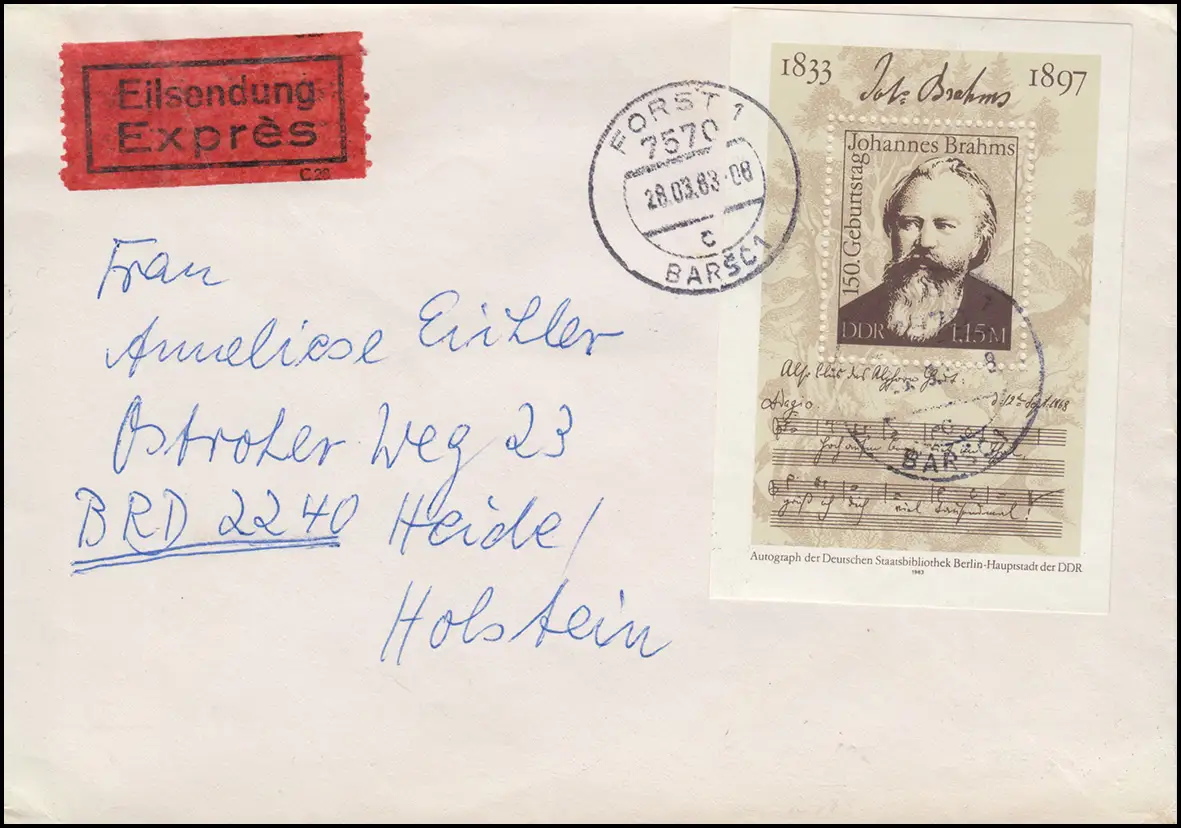 Eilsendung
Exprès
C 28
FORST 1
7570
28.03.83-08
c
BARŠĆ 1
1833 Joh. Brahms 1897
Johannes Brahms
150. Geburtstag
DDR 1,15 M
8
BARŠ
Adagio. d. 12ten Sept. 1868
grüß ich dich viel tausendmal!
Autograph der Deutschen Staatsbibliothek Berlin-Hauptstadt der DDR
1983
Frau
Anneliese Eichler
Ostroher Weg 23
BRD 2240 Heide/
Holstein